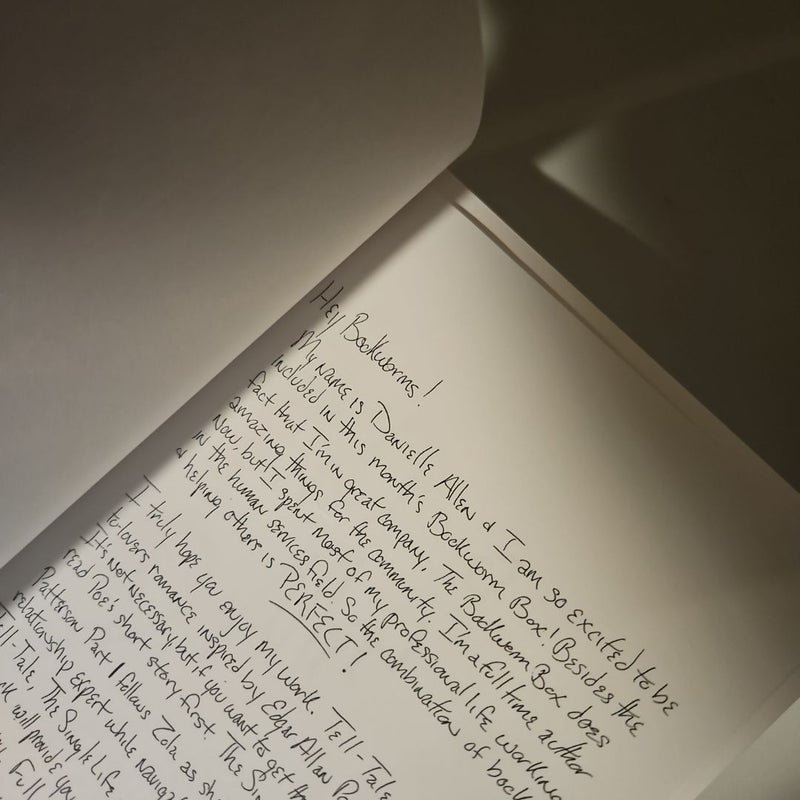 Hey Bookworms!
My name is Danielle Allen & I am so excited to be
included in this month's Bookworm Box! Besides the
fact that I'm in great company, The Bookworm Box does
amazing things for the community. I'm a full time author
now, but I spent most of my professional life working
in the human services field. So the combination of
& helping others is PERFECT!
I truly hope you enjoy my work. Tell-Tale
to-lovers romance inspired by Edgar Allan
It's not necessary but if you want to get
read Poe's short story first. The
Patterson Part 1 follows Zola as
relationship expert while
Tell-Tale, The Single Life
will provide you
Full